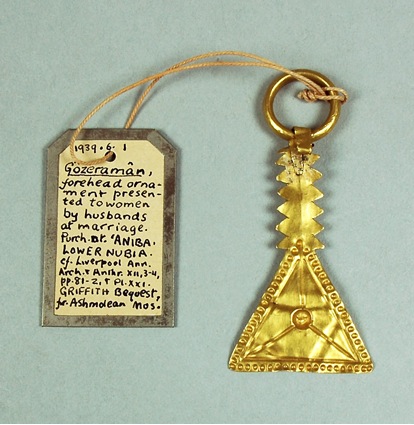 1939.6.1
Gözeramân,
forehead orna-
ment presen-
ted to women
by husbands
at marriage.
Purch. at 'ANIBA,
LOWER NUBIA.
cf. Liverpool Ann.
Arch. & Anthr. XII, 3-4,
pp. 81-2, & Pl. XXI.
GRIFFITH Bequest,
fr. Ashmolean Mus.